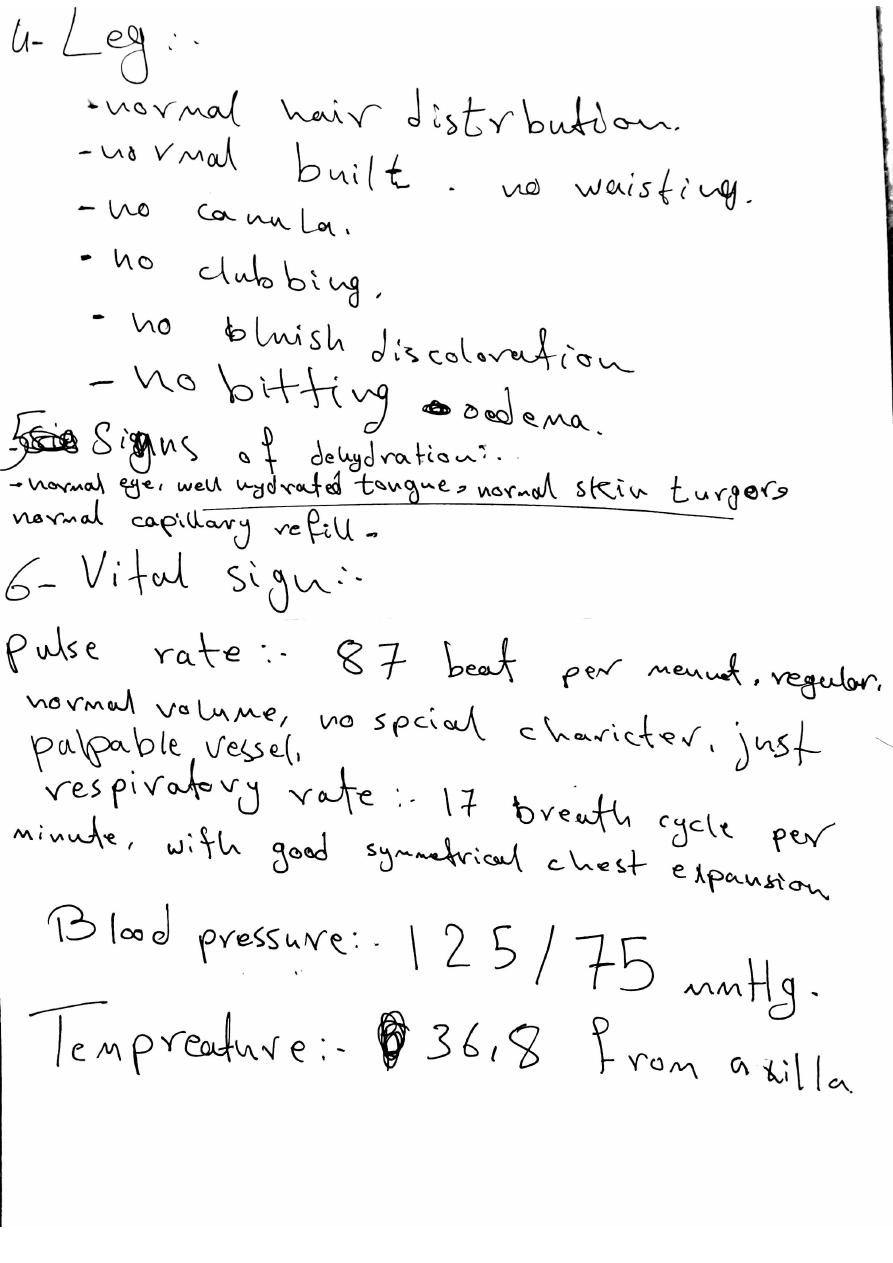 4- Leg:-
- normal hair distrbution.
- normal built. no waisting.
- no canula.
- no clubbing.
- no bluish discoloration
- no bitting oedema.
5- Signs of dehydration:-
- normal eye, well hydrated tongue, normal skin turgor,
normal capillary refill.
6- Vital sign:-
Pulse rate:- 87 beat per menut, regular,
normal volume, no spcial charicter, just
palpable vessel,
respiratory rate:- 17 breath cycle per
minute, with good symmetrical chest expansion
Blood pressure:- 125/75 mmHg.
Tempreature:- 36,8 from axilla